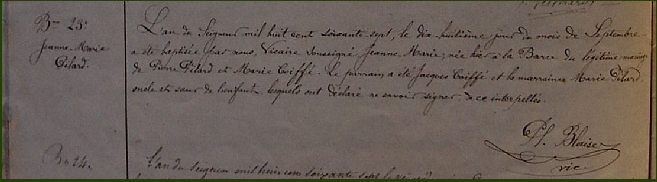 Bme 23e
Jeanne Marie
Pilard.
L'an du Seigneur mil huit cent soixante sept, le dix huitième jour du mois de Septembre
a été baptisée par nous, Vicaire soussigné Jeanne Marie, née hier à la Barre du légitime mariage
de Pierre Pilard et Marie Coiffé. Le parrain a été Jacques Coiffé et la marraine Marie Pilard,
oncle et sœur de l'enfant, lesquels ont déclaré ne savoir signer de ce interpellés.
Pl. Blaise
vic.
Bme 24.
L'an du Seigneur mil huit cent soixante sept le